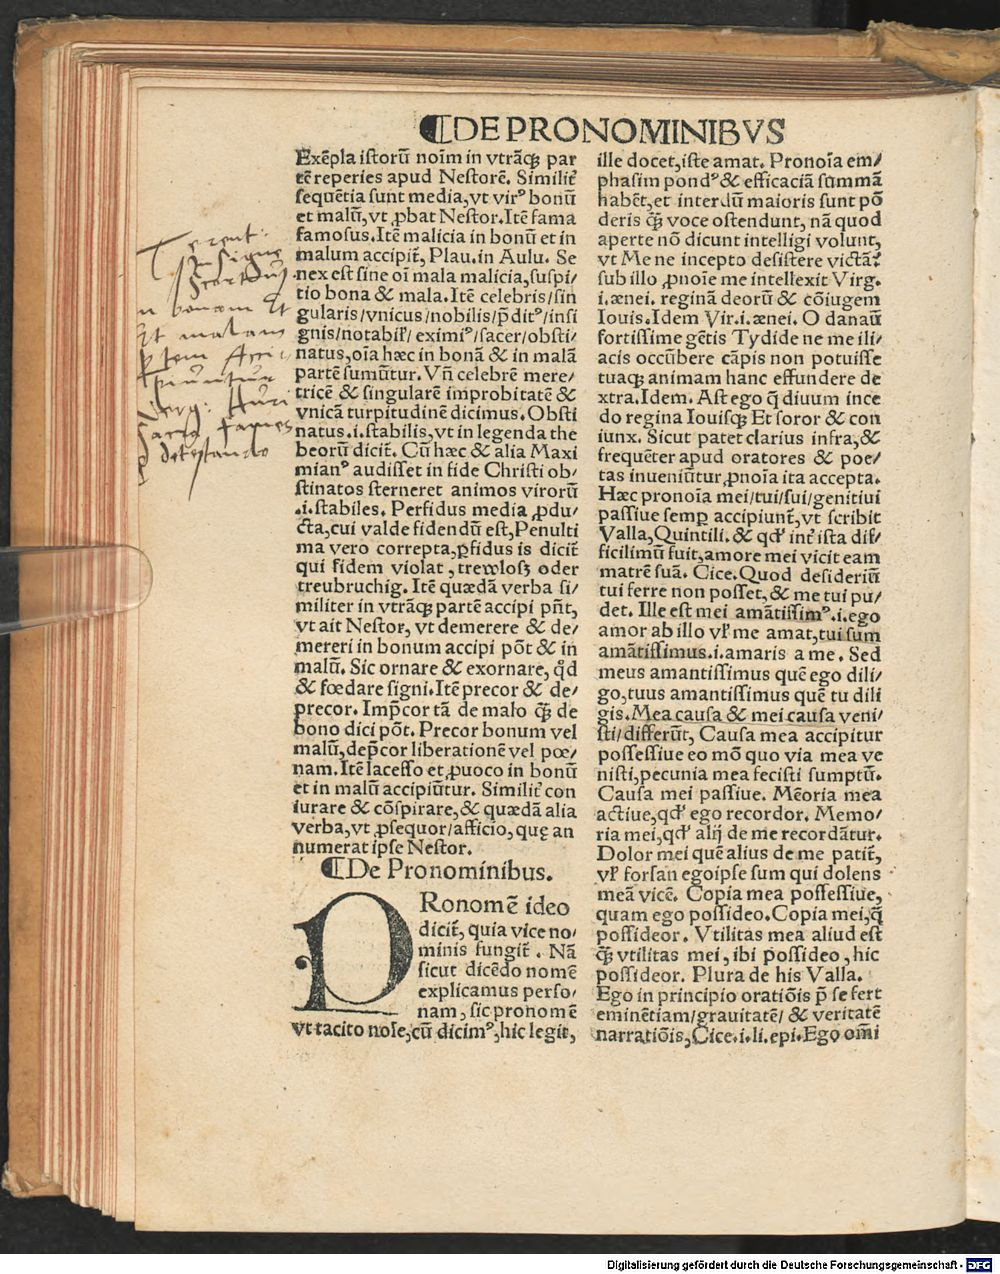 ⁋DE PRONOMINIBVS
Exēpla istorū noīm in vtrāqꝫ par
tē reperies apud Nestorē. Similit̄
sequētia sunt media, vt virꝰ bonū
et malū, vt ꝓbat Nestor. Itē fama
famosus. Itē malicia in bonū et in
malum accipit̄, Plau. in Aulu. Se
nex est sine oī mala malicia, suspi/
tio bona & mala. Itē celebris/sin
gularis/vnicus/nobilis/p̄ditꝰ/insi
gnis/notabil̕/eximiꝰ/sacer/obsti/
natus, oīa hæc in bonā & in malā
partē sumūtur. Vn̄ celebrē mere/
tricē & singularē improbitatē &
vnicā turpitudinē dicimus. Obsti
natus .i. stabilis, vt in legenda the
beorū dicit̄. Cū hæc & alia Maxi
mianꝰ audisset in fide Christi ob/
stinatos sterneret animos virorū
.i. stabiles. Perfidus media ꝓdu/
cta, cui valde fidendū est, Penulti
ma vero correpta, ꝑfidus is dicit̄
qui fidem violat, trewlosz oder
treubruchig. Itē quædā verba si/
militer in vtrāqꝫ partē accipi pn̄t,
vt ait Nestor, vt demerere & de/
mereri in bonum accipi pōt & in
malū. Sic ornare & exornare, qd̕
& fœdare signi. Itē precor & de/
precor. Imp̄cor tā de malo q̄ꝫ de
bono dici pōt. Precor bonum vel
malū, dep̄cor liberationē vel pœ/
nam. Itē lacesso et ꝓuoco in bonū
et in malū accipiūtur. Similit̄ con
iurare & cōspirare, & quædā alia
verba, vt ꝓsequor/afficio, quę an
numerat ipse Nestor.
⁋De Pronominibus.
PRonomē ideo
dicit̄, quia vice no/
minis fungit̄. Nā
sicut dicēdo nomē
explicamus perso/
nam, sic pronomē
vt tacito noīe, cū dicimꝰ, hic legit,
ille docet, iste amat. Pronoīa em/
phasim pondꝰ & efficaciā summā
habēt, et interdū maioris sunt pō
deris q̄ꝫ voce ostendunt, nā quod
aperte nō dicunt intelligi volunt,
vt Me ne incepto desistere victā?
sub illo ꝓnoīe me intellexit Virg.
i. ænei. reginā deorū & cōiugem
Iouis. Idem Vir. i. ænei. O danaū
fortissime gētis Tydide ne me ili/
acis occūbere cāpis non potuisse
tuaqꝫ animam hanc effundere de
xtra. Idem. Ast ego q̄ diuum ince
do regina Iouisqꝫ Et soror & con
iunx. Sicut patet clarius infra, &
frequēter apud oratores & poe/
tas inueniūtur ꝓnoīa ita accepta.
Hæc pronoīa mei/tui/sui/genitiui
passiue semꝑ accipiunt̄, vt scribit
Valla, Quintili. & qd̕ int̄ ista dif/
ficilimū fuit, amore mei vicit eam
matrē suā. Cice. Quod desideriū
tui ferre non posset, & me tui pu/
det. Ille est mei amātissimꝰ .i. ego
amor ab illo vl̕ me amat, tui sum
amātissimus .i. amaris a me. Sed
meus amantissimus quē ego dili/
go, tuus amantissimus quē tu dili
gis. Mea causa & mei causa veni/
sti/differūt, Causa mea accipitur
possessiue eo mō quo via mea ve
nisti, pecunia mea fecisti sumptū.
Causa mei passiue. Mēoria mea
actiue, qd̕ ego recordor. Memo/
ria mei, qd̕ alij de me recordātur.
Dolor mei quē alius de me patit̄,
vl̕ forsan egoipse sum qui dolens
meā vicē. Copia mea possessiue,
quam ego possideo. Copia mei, q̄
possideor. Vtilitas mea aliud est
q̄ꝫ vtilitas mei, ibi possideo, hic
possideor. Plura de his Valla.
Ego in principio oratiōis p̄ se fert
eminētiam/grauitatē/ & veritatē
narratiōis, Cice. i. li. epi. Ego om̄i
Terent:
Insigne
in bonam Et
Et malam
ptem Acci
piuntur
Verg: Auri
Sacra fames
detestando
Digitalisierung gefördert durch die Deutsche Forschungsgemeinschaft - DFG